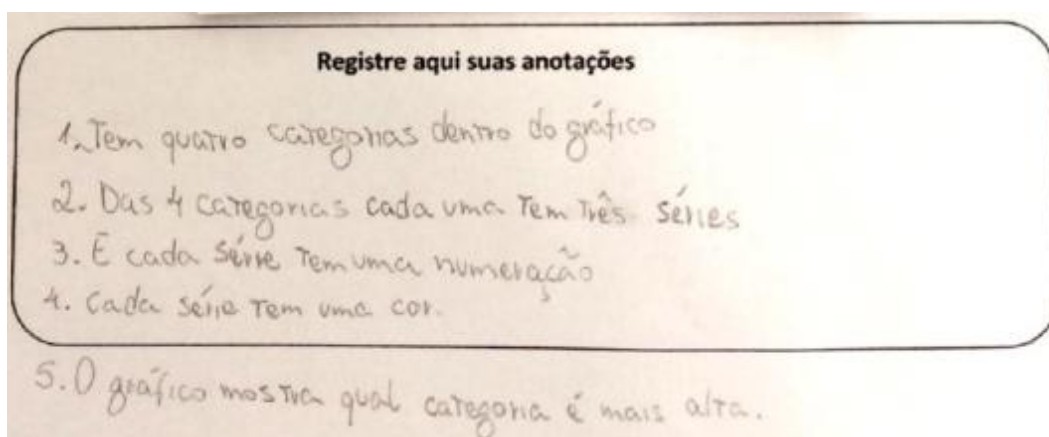 Registre aqui suas anotações
1. Tem quatro categorias dentro do gráfico
2. Das 4 categorias cada uma tem três séries
3. E cada série tem uma numeração
4. Cada série tem uma cor.
5. O gráfico mostra qual categoria é mais alta.